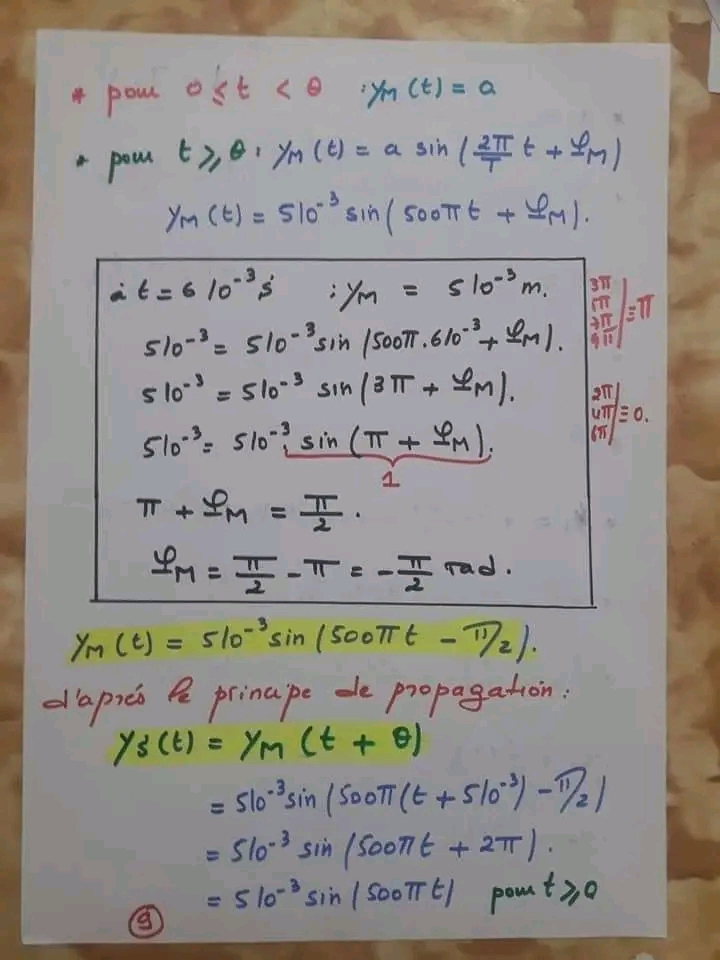 * pour 0 ≤ t < θ : yM(t) = a
* pour t ≥ θ : yM(t) = a sin(2π/T t + φM)
yM(t) = 5 10⁻³ sin(500πt + φM).
à t = 6 10⁻³ s : yM = 5 10⁻³ m.
5 10⁻³ = 5 10⁻³ sin(500π.6 10⁻³ + φM).
5 10⁻³ = 5 10⁻³ sin(3π + φM).
5 10⁻³ = 5 10⁻³ sin(π + φM).
1
π + φM = π/2.
φM = π/2 - π = -π/2 rad.
3π
5π
7π
9π
≡ π
2π
4π
6π
≡ 0.
yM(t) = 5 10⁻³ sin(500πt - π/2).
d'aprés le principe de propagation :
yS(t) = yM(t + θ)
= 5 10⁻³ sin(500π(t + 5 10⁻³) - π/2)
= 5 10⁻³ sin(500πt + 2π).
= 5 10⁻³ sin(500πt) pour t ≥ 0
9